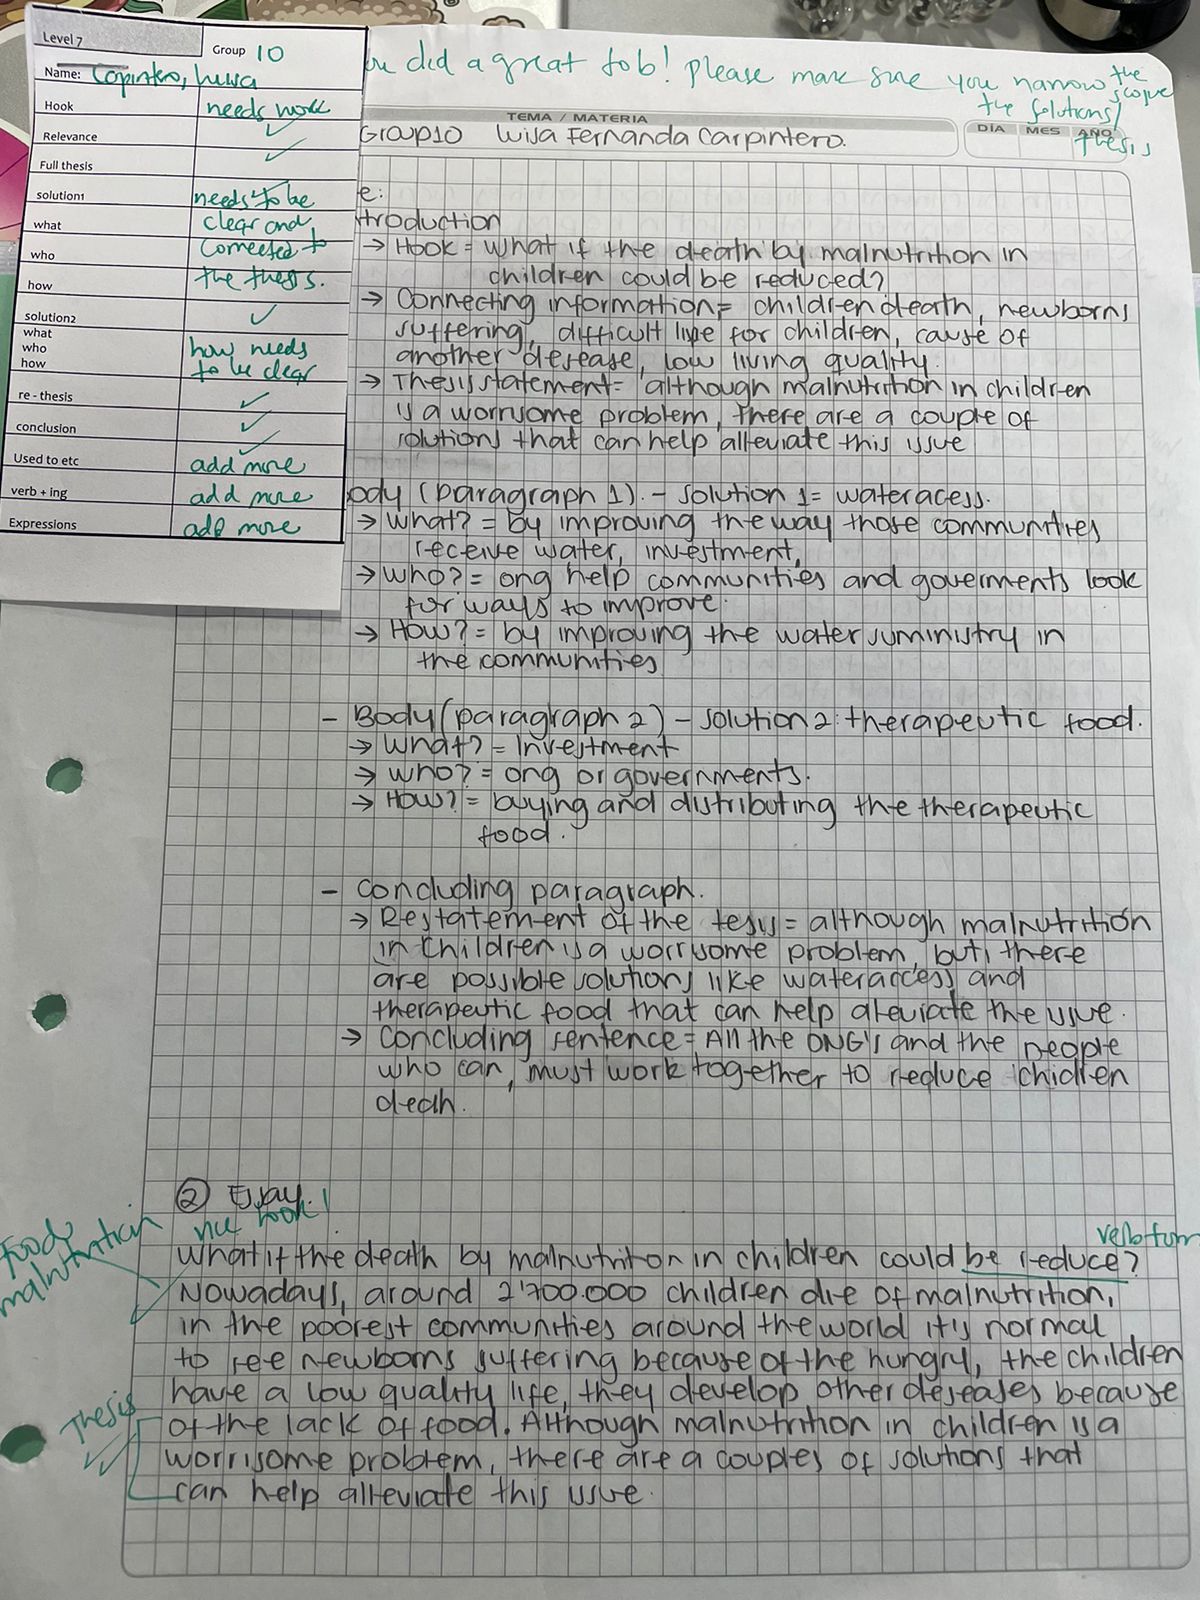 Level 7
Group 10
Name: Carpintero, Luisa
Hook needs work
Relevance ✓
Full thesis ✓
solution1 needs to be
what clear and
who connected to
how the thesis.
solution2 ✓
what
who how needs
how to be clear
re - thesis ✓
conclusion ✓
Used to etc add more
verb + ing add more
Expressions add more
did a great job! please make sure you narrow the
scope
the solutions/
thesis
TEMA / MATERIA
DÍA MES AÑO
Group10 Luisa Fernanda Carpintero.
e:
troduction
→ Hook = what if the death by malnutrition in
children could be reduced?
→ Connecting information = children death, newborns
suffering, difficult live for children, cause of
another desease, low living quality.
→ Thesis statement = although malnutrition in children
is a worrysome problem, there are a couple of
solutions that can help alleviate this issue
ody (paragraph 1). - solution 1 = water acess.
→ what? = by improving the way those communities
receive water, investment,
→ who? = ong help communities and goverments look
for ways to improve.
→ How? = by improving the water suministry in
the communities
- Body (paragraph 2) - solution 2: therapeutic food.
→ what? = Investment
→ who? = ong or governments.
→ How? = buying and distributing the therapeutic
food.
- Concluding paragraph.
→ Restatement of the tesis = although malnutrition
in children is a worrysome problem, but, there
are possible solutions like water access and
therapeutic food that can help alleviate the issue.
→ Concluding sentence = All the ONG's and the people
who can, must work together to reduce children
deah.
② Essay.
nice hook!
food
malnutrition
verb form
What if the death by malnutriton in children could be reduce?
Nowadays, around 2'700.000 children die of malnutrition,
in the poorest communities around the world it's normal
to see newborns suffering because of the hungry, the children
have a low quality life, they develop other deseases because
Thesis
of the lack of food. Although malnutrition in children is a
worrisome problem, there are a couples of solutions that
can help alleviate this issue.